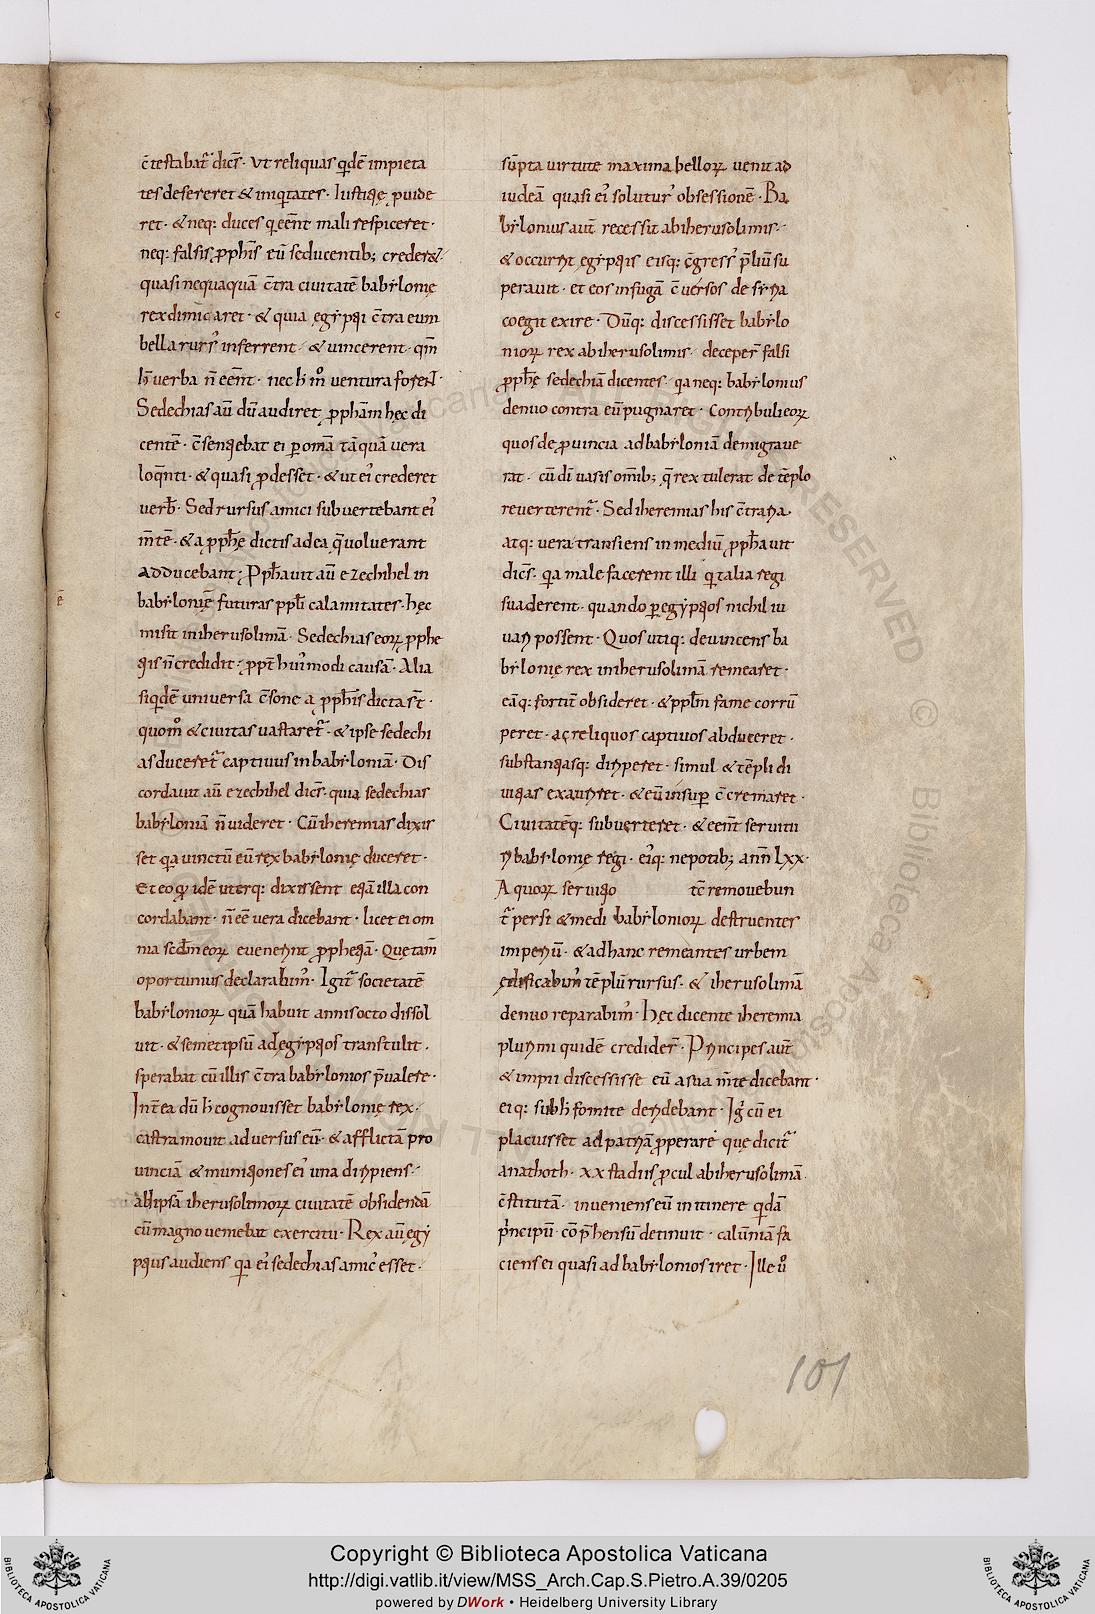 c̄testabat᷑ dics̄· Vt reliquas qdē impieta
tes desereret & iniqtates· Iustiqę puide
ret· & neq: duces q eēnt mali respiceret·
neq: falsis pphis eū seducentib; creder&·
quasi nequaquā c̄tra ciuitatē babilonię
rex dimicaret· & quia egiptii c̄tra eum
bella rurs᷒ inferrent· & uincerent· qm̄
h̄ uerba n̄ eēnt· nec h̄ m̊ uentura forent·
Sedechias aū dū audiret pphām hęc di
centē· c̄sentiebat ei p omā tāquā uera
loqnti· & quasi pdesset· & ut ei᷒ crederet
uerb̄· Sed rursus amici subuertebant ei᷒
m̄tē· & a pphę dictis ad ea q̄ uoluerant
adducebant; Pphauit aū ezechihel in
babilonię futuras ppli calamitates· hęc
misit in iherusolimā· Sedechias eoꝝ pphe
tiis n̄ credidit· ppt hui᷒modi causā· Alia
siqdē uniuersa c̄sone a pphis dicta st̄·
quom̊ & ciuitas uastaret᷑· & ipse sedechi
as duceret᷑ captiuus in babiloniā· Dis
cordauit aū ezechihel dics̄· quia sedechias
babiloniā n̄ uideret· Cū iheremias dixis
set qa uinctū eū rex babilonię duceret·
Et eo qđ idē uterq: dixissent etiā illa con
cordabant· n̄ eē uera dicebant· licet ei om
nia scđm eoꝝ euenerint pphetiā· Quę tam̄
oportunius declarabim᷒· Igit᷑ societatē
babilonioꝝ quā habuit annis octo dissol
uit· & semetipsū ad egiptios transtulit·
sperabat cū illis c̄tra babilonios p̄ualere·
Int̄ea dū h̄ cognouisset babilonię rex·
castra mouit aduersus eū· & afflictā pro
uinciā & munitiones ei᷒ una diripiens·
ad ipsā iherusolimoꝝ ciuitatē obsidendā
cū magno ueniebat exercitu· Rex aū egi
ptius audiens qa ei᷒ sedechias amic᷒ esset·
sūpta uirtute maxima belloꝝ uenit ad
iudeā quasi ei᷒ solutur᷒ obsessionē· Ba
bilonius aut̄ recessit ab iherusolimis·
& occurrit egiptiis eisq: c̄gress᷒ p̄liū su
perauit· et eos in fugā c̄uersos de siria
coegit exire· Dūq: discessisset babilo
nioꝝ rex ab iherusolimis· deceper̄ falsi
pphę sedechiā dicentes· qa neq: babilonius
denuo contra eū pugnaret· contribuli eoꝝ
quos de prouincia ad babiloniā demigraue
rat· cū di uasis omib; q̄ rex tulerat de tēplo
reuerterent᷑· Sed iheremias his c̄traria·
atq: uera transiens in mediū pphauit
dics̄· qa male facerent illi q talia regi
suaderent· quando p egiptios nichil iu
uari possent· Quos utiq: deuincens ba
bilonię rex in iherusolimā remearet·
eāq: fortit̄ obsideret· & pplm̄ fame corrū
peret· ac reliquos captiuos abduceret·
substantiasq: diriperet· simul & tēpli di
uitias exauriret· & eū insup c̄cremaret·
Ciuitatēq: subuerteret· & eēnt seruitu
ri babilonię regi· ei᷒q: nepotib; ann̄ lxx·
A quoꝝ seruitio tc̄ remouebun
t᷑ persi & medi babilonioꝝ destruentes
imperiū· & ad hanc remeantes urbem
ędificabim᷒ tēplū rursus· & iherusolimā
denuo reparabim᷒· Hęc dicente iheremia
plurimi quidē credider̄· Principes aut̄
& impii discessisse eū a sua m̄te dicebant·
eiq: sub h̄ fomite deridebant· Ig cū ei
placuisset ad patriā pperare quę dicit᷑
anathoth· xx stadiis pcul ab iherusolimā
c̄stitutā· inueniens eū in itinere qdā
p̄ncipū· cōp̄hensū detinuit· calūniā fa
ciens ei quasi ad babilonios iret· Ille ů
101
Copyright © Biblioteca Apostolica Vaticana
http://digi.vatlib.it/view/MSS_Arch.Cap.S.Pietro.A.39/0205
powered by DWork • Heidelberg University Library